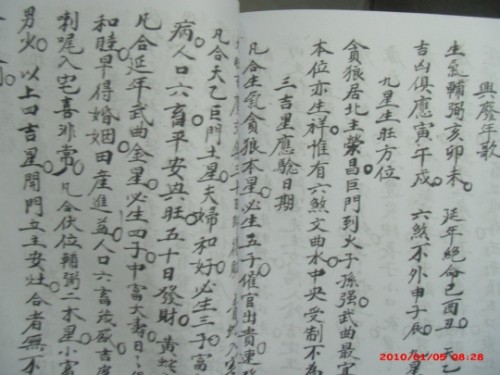 興廢年歌
生氣輔弼亥卯未 延年絕命巳酉丑 天乙
吉凶俱應寅午戌 六煞不外申子辰
九星生旺方位
貪狼居北主榮昌 巨門到火子孫強 武曲最宜
本位亦生祥 惟有六煞文曲水 中央受制不為
三吉星應驗日期
凡合生氣貪狼木星必生五子催官出貴
凡合天乙巨門土星夫婦和好必生三子富
病人口六畜平安興旺五十日發財 黃蛇
凡合延年武曲金星必生四子中富大壽日
和睦早得婚姻田産進益人口六畜
喇嘴入宅喜非常 凡合伏位輔弼二木星小富
男火 以上四吉星開門立主安灶合者無不
2010/01/05 08:28